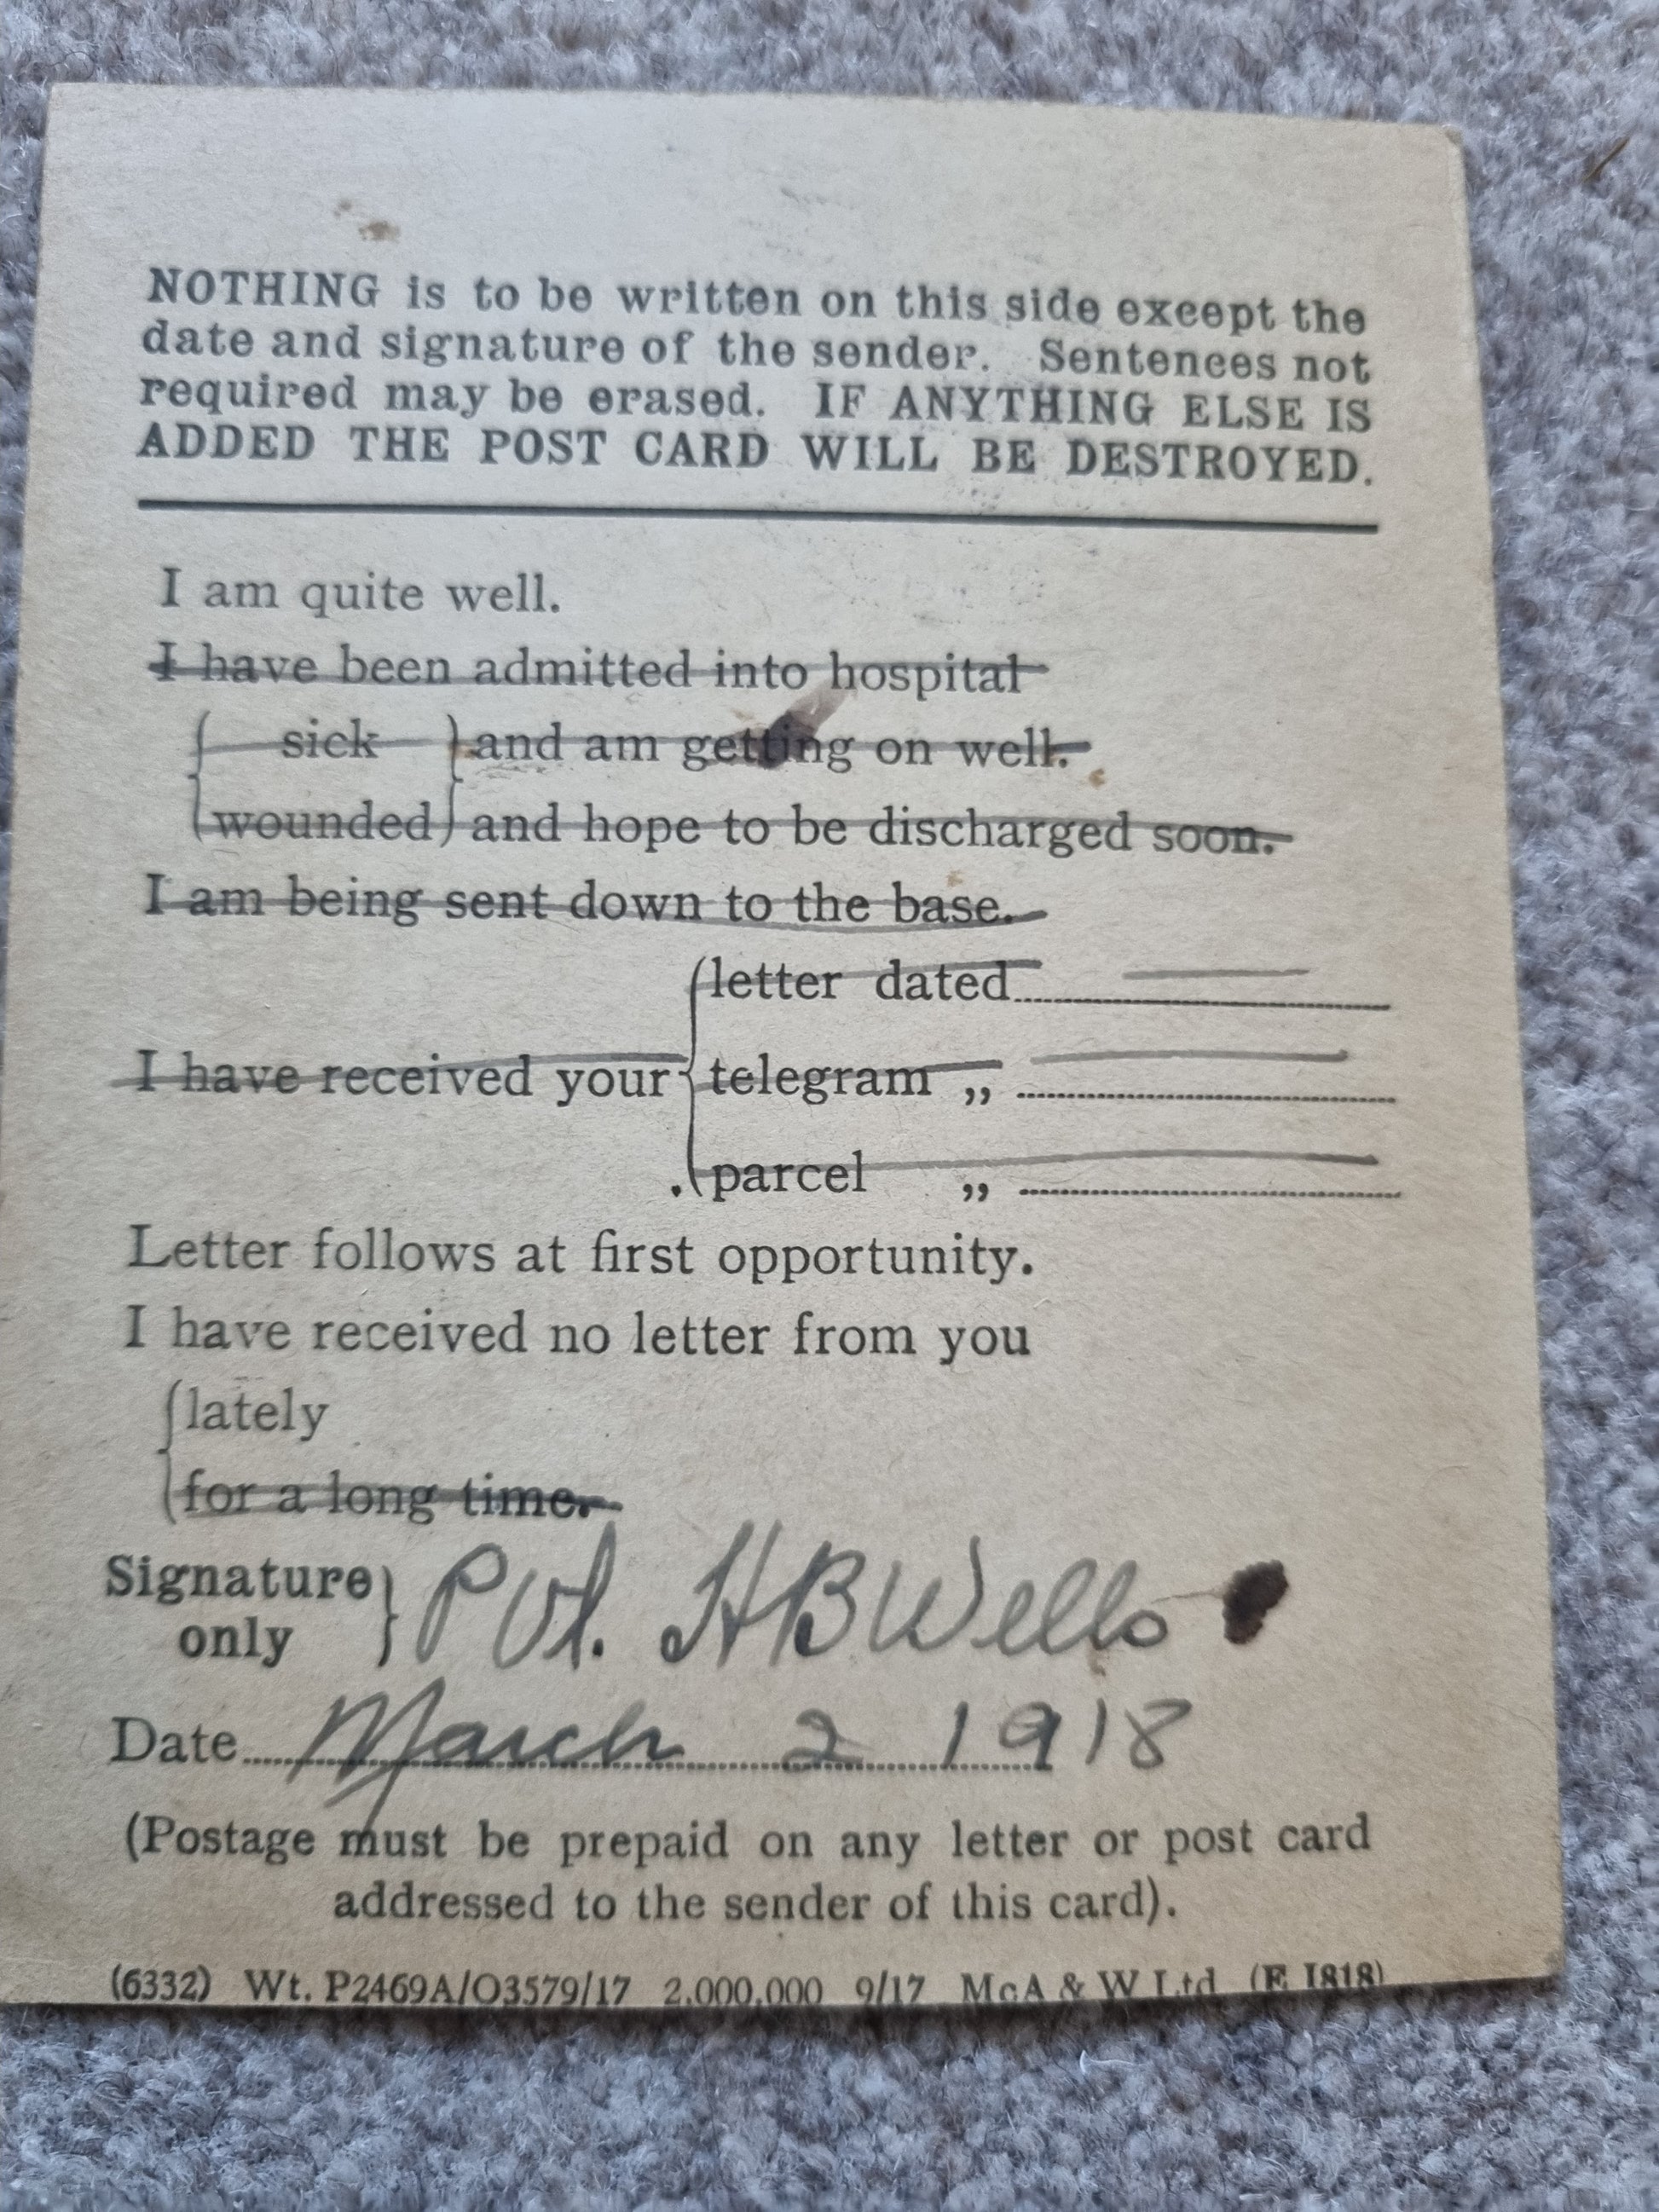 NOTHING is to be written on this side except the
date and signature of the sender. Sentences not
required may be erased. IF ANYTHING ELSE IS
ADDED THE POST CARD WILL BE DESTROYED.
I am quite well.
I have been admitted into hospital
{ sick } and am getting on well.
{ wounded } and hope to be discharged soon.
I am being sent down to the base.
{ letter dated
I have received your { telegram „
{ parcel „
Letter follows at first opportunity.
I have received no letter from you
{ lately
{ for a long time.
Signature
only } Pvt. H B Wells
Date March 2 1918
(Postage must be prepaid on any letter or post card
addressed to the sender of this card).
(6332) Wt. P2469A/O3579/17 2,000,000 9/17 McA & W Ltd (E 1818)